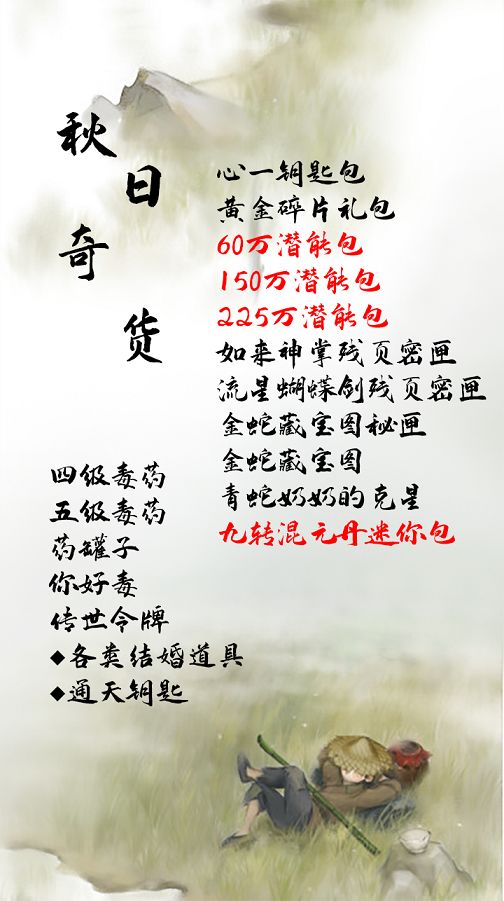 秋日奇货
心一钥匙包
黄金碎片礼包
60万潜能包
150万潜能包
225万潜能包
如来神掌残页密匣
流星蝴蝶剑残页密匣
金蛇藏宝图秘匣
金蛇藏宝图
青蛇奶奶的克星
九转混元丹迷你包
四级毒药
五级毒药
药罐子
你好毒
传世令牌
◆各类结婚道具
◆通天钥匙